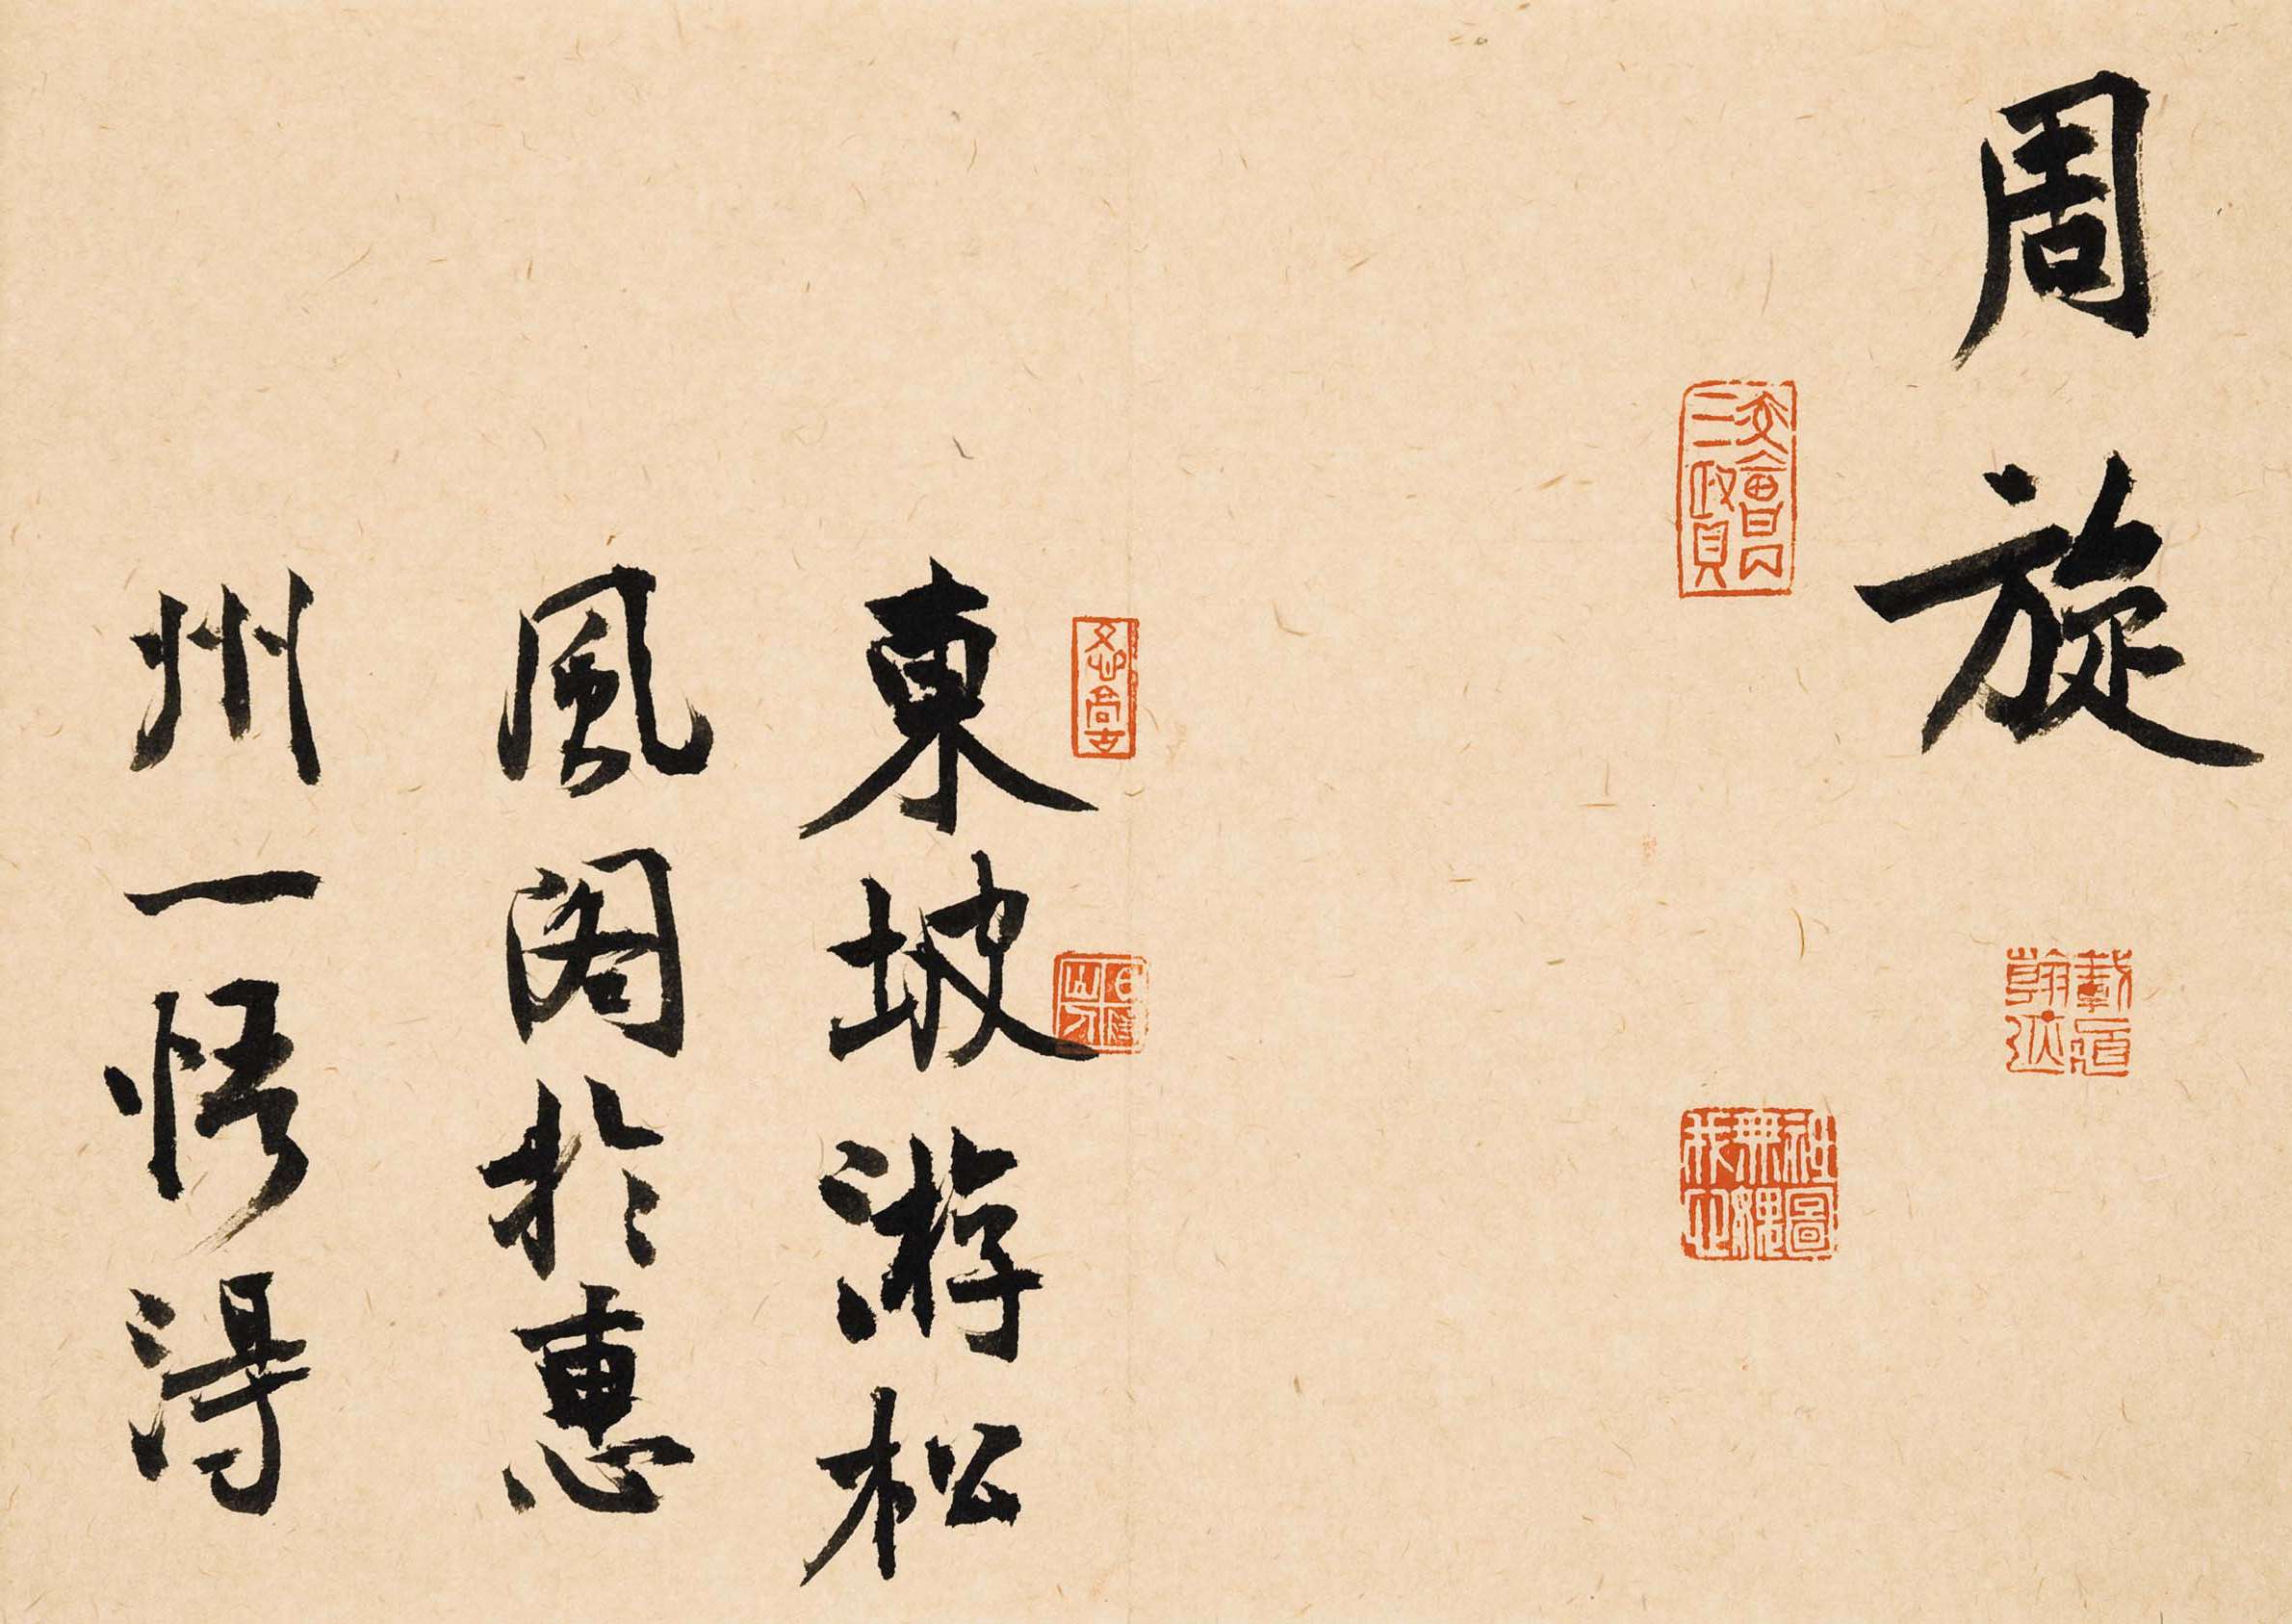 周旋
東坡游松
風閣於惠
州一悟得